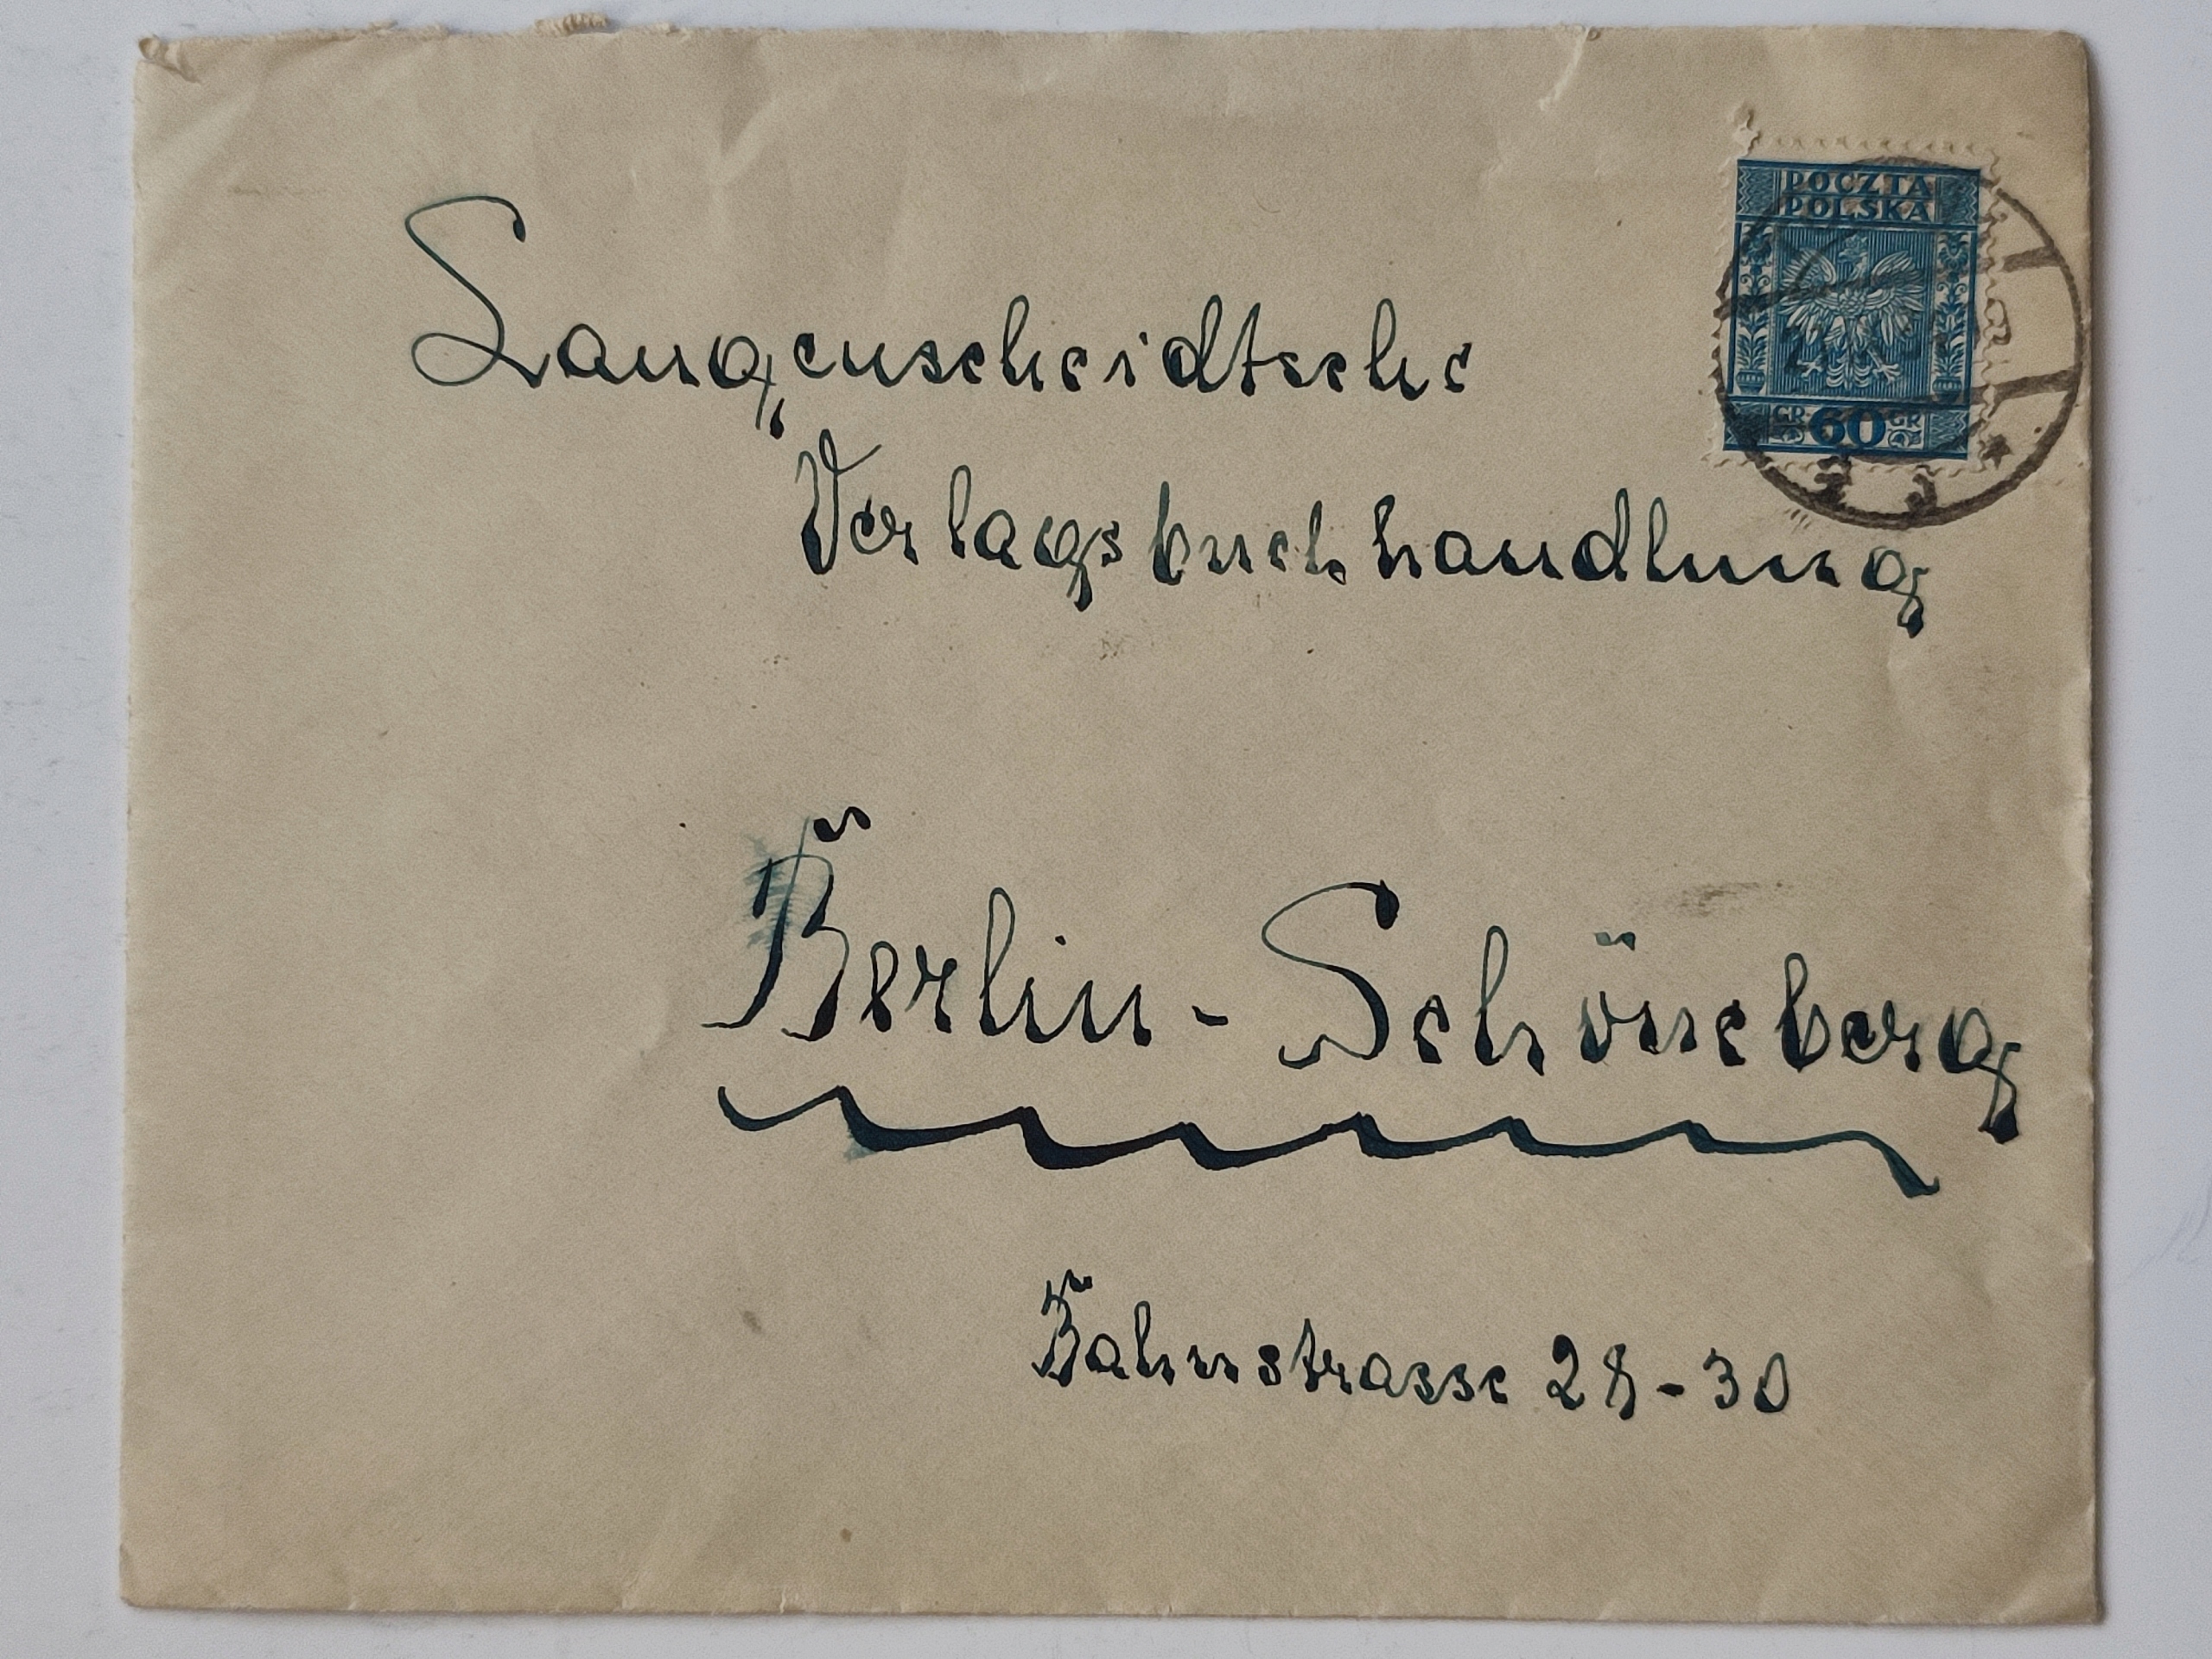 POCZTA
POLSKA
GR 60 GR
Langenscheidtsche
Verlagsbuchhandlung
Berlin - Schöneberg
Bahnstrasse 28-30